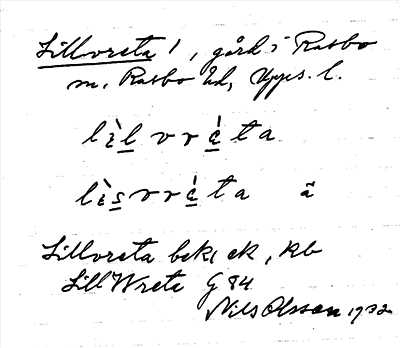 Lillvreta 1, gård i Rasbo
sn, Rasbo hd, Upps. l.
lìl vrèta
lìsvrèta ä
Lillvreta bek, ek, kb
Lill Wreta G 84
Nils Olsson 1932